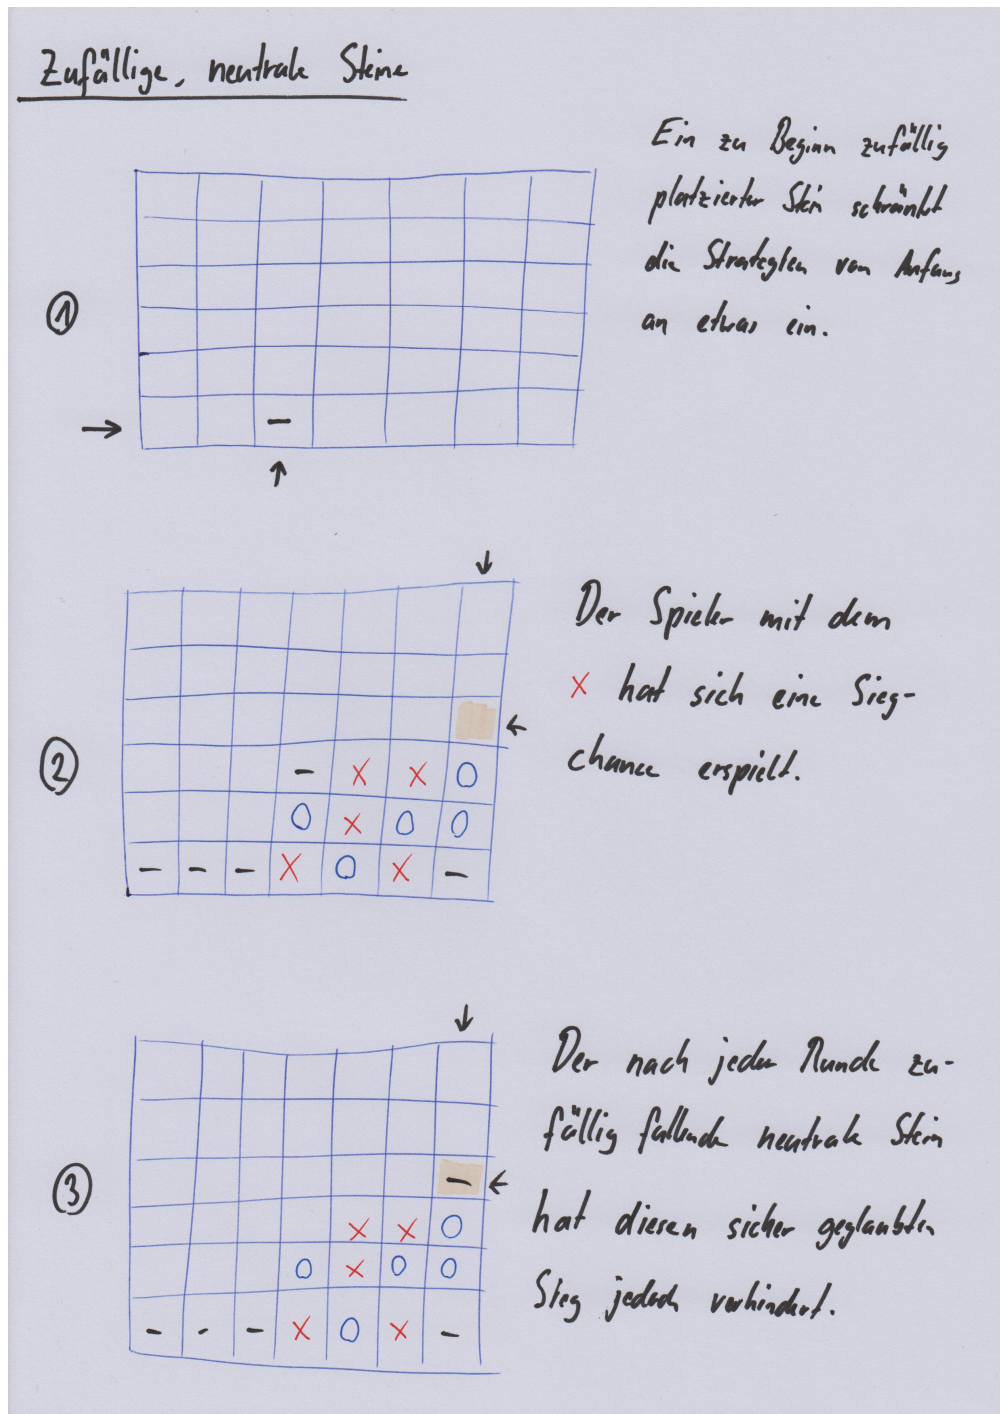 Zufällige, neutrale Steine
Ein zu Beginn zufällig
platzierter Stein schränkt
die Strategien von Anfang
an etwas ein.
1
–
Der Spieler mit dem
X hat sich eine Sieg-
chance erspielt.
2
– X X O
O X O O
– – – X O X –
Der nach jeder Runde zu-
fällig fallende neutrale Stein
hat diesen sicher geglaubten
Sieg jedoch verhindert.
3
–
X X O
O X O O
– – – X O X –